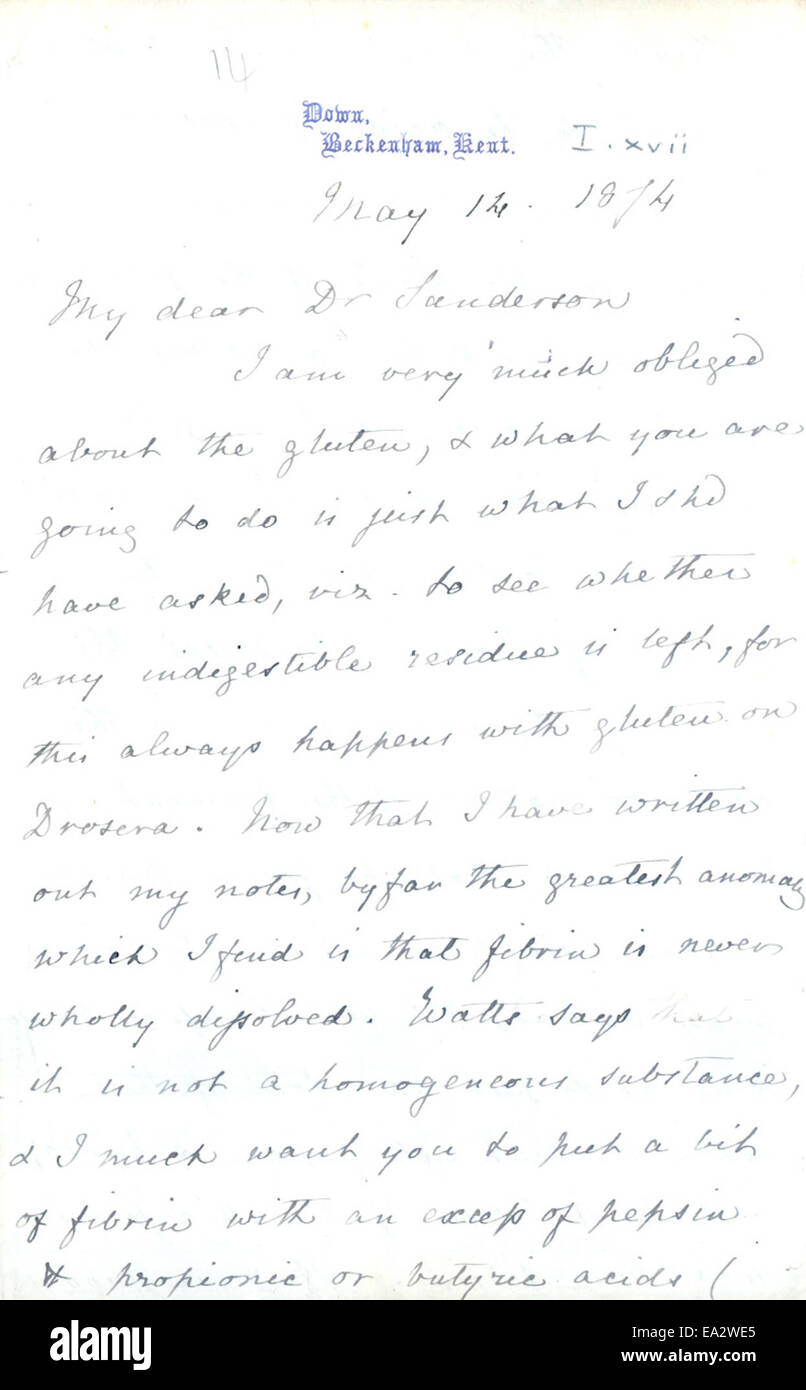 14
Down,
Beckenham, Kent.
I. xvii
May 14. 1874
My dear Dr Sanderson
I am very much obliged
about the gluten, & what you are
going to do is just what I shd
have asked, viz. to see whether
any indigestible residue is left, for
this always happens with gluten on
Drosera. Now that I have written
out my notes, by far the greatest anomaly
which I find is that fibrin is never
wholly dissolved. Watts says that
it is not a homogeneous substance,
& I much want you to put a bit
of fibrin with an excess of pepsin
& propionic or butyric acids (
alamy
Image ID: EA2WE5
www.alamy.com